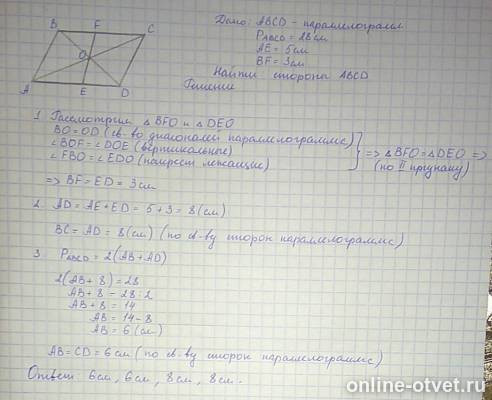 B F C
O
A E D
Дано: ABCD - параллелограмм
PABCD = 28 см
AE = 5 см
BF = 3 см
Найти: стороны ABCD
Решение
1 Рассмотрим △ BFO и △ DEO
BO = OD (св-во диагоналей параллелограмма)
∠BOF = ∠DOE (вертикальные)
∠FBO = ∠EDO (накрест лежащие)
=> △ BFO = △ DEO =>
(по II признаку)
=> BF = ED = 3 см
2 AD = AE + ED = 5 + 3 = 8 (см)
BC = AD = 8 (см) (по св-ву сторон параллелограмма)
3 PABCD = 2(AB + AD)
2(AB + 8) = 28
AB + 8 = 28 : 2
AB + 8 = 14
AB = 14 - 8
AB = 6 (см)
AB = CD = 6 см (по св-ву сторон параллелограмма)
Ответ: 6 см, 6 см, 8 см, 8 см.
online-otvet.ru